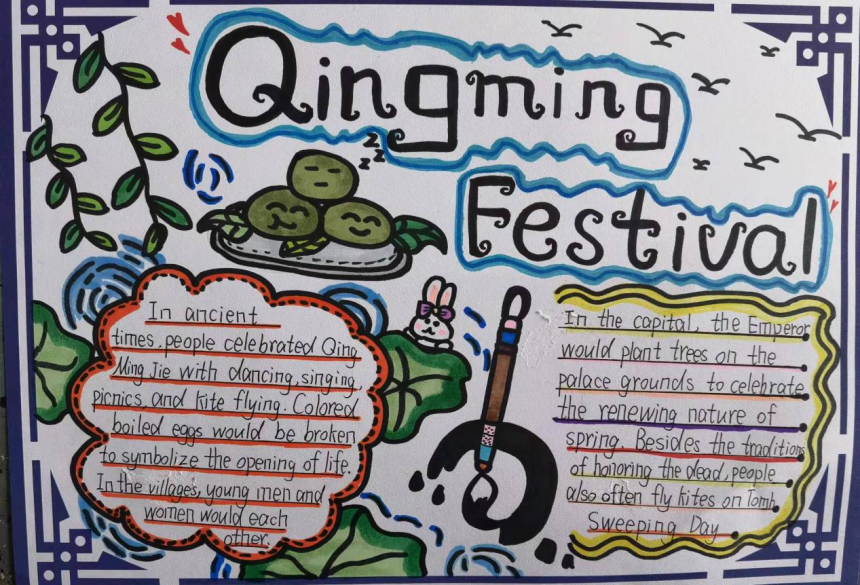 Qingming
Festival
z z z
In ancient
times, people celebrated Qing
Ming Jie with dancing, singing,
picnics, and kite flying. Colored
boiled eggs would be broken
to symbolize the opening of life.
In the villages, young men and
women would each
other.
In the capital, the Emperor
would plant trees on the
palace grounds to celebrate
the renewing nature of
spring. Besides the traditions
of honoring the dead, people
also often fly kites on Tomb
Sweeping Day.